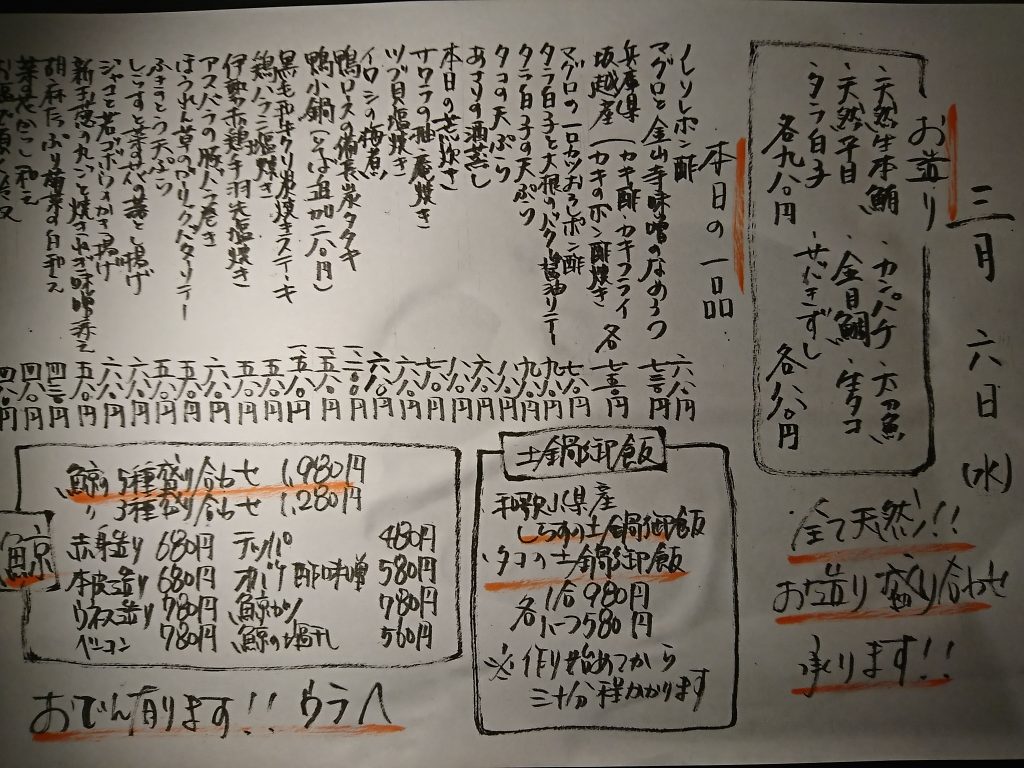 三月 六日 (水)
お造り
・天然生本鮪 ・カンパチ ・太刀魚
・天然平目 ・金目鯛 ・生タコ
・タラ白子
各九八〇円
各八八〇円
全て天然!!
お造り盛り合わせ
承ります!!
本日の一品
ノレソレポン酢 六八〇円
マグロと金山寺味噌のなめろう 七三〇円
兵庫県
坂越産 (カキ酢・カキフライ
カキのポン酢焼き 各 七五〇円
マグロの一口カツおろしポン酢 七八〇円
タラ白子と大根のバター醤油ソテー 九八〇円
タラ白子の天ぷら 九八〇円
タコの天ぷら 八八〇円
あさりの酒蒸し 六八〇円
本日の煮炊き 八八〇円
サワラの柚庵焼き 七八〇円
ツブ貝塩焼き 六八〇円
イワシの梅煮 六八〇円
鴨ロースの備長炭タタキ
鴨小鍋(そば追加二八〇円)
黒毛和牛クリ炭焼きステーキ
鶏ハラミ塩焼き
伊勢赤鶏手羽先塩焼き 五八〇円
アスパラの豚バラ巻き 六八〇円
ほうれん草のガーリックバターソテー 五八〇円
ふきのとう天ぷら 五八〇円
しらすと菜の花の落とし揚げ 六八〇円
ジャコと若ゴボウのかき揚げ 六八〇円
新玉葱の丸ごと焼きねぎ味噌添え 五八〇円
胡麻たっぷり 白和え
菜の花からし和え 四八〇円
土鍋御飯
和歌山県産
しらすの土鍋御飯
タコの土鍋御飯
各 1合 980円
ハーフ 580円
※作り始めてから
三十分程かかります
鯨
鯨 5種盛り合わせ 1,980円
〃 3種盛り合わせ 1,280円
赤身造り 680円 テッパ 480円
本皮造り 680円 オバケ酢味噌 580円
ウネス造り 780円 鯨カツ 780円
ベーコン 780円 鯨の塩干し 560円
おでん有ります!! ウラへ